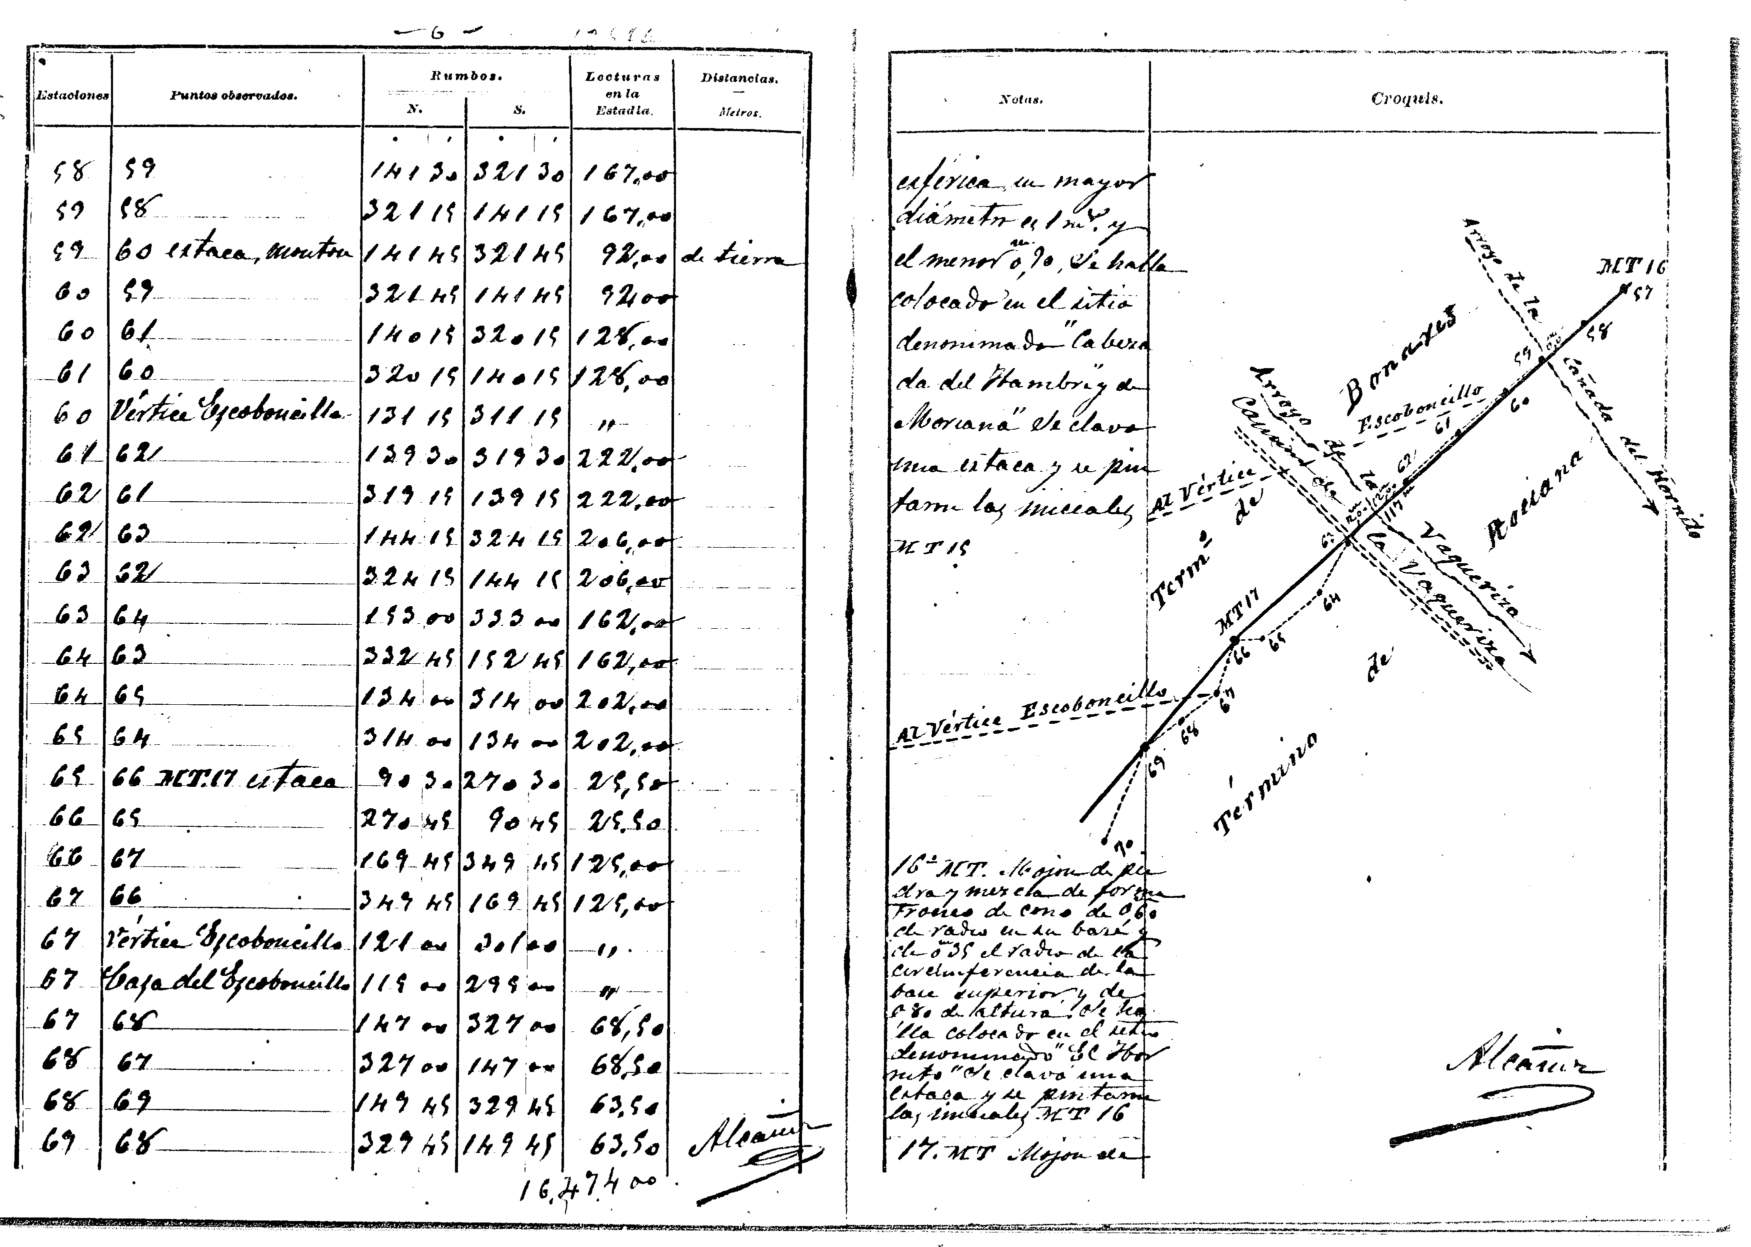 — 6 —
Estaciones Puntos observados. Rumbos. N. S. Lecturas en la Estadía. Distancias. — Metros.
58 59 141 30 321 30 167,00
59 58 321 15 141 15 167,00
59 60 estaca, monton 141 45 321 45 92,00 de tierra
60 59 321 45 141 45 92,00
60 61 140 15 320 15 128,00
61 60 320 15 140 15 128,00
60 Vértice Escoboncillo 131 15 311 15 "
61 62 139 30 319 30 222,00
62 61 319 15 139 15 222,00
62 63 144 15 324 15 206,00
63 62 324 15 144 15 206,00
63 64 153 00 333 00 162,00
64 63 332 45 152 45 162,00
64 65 134 00 314 00 202,00
65 64 314 00 134 00 202,00
65 66 MT.17 estaca 90 30 270 30 25,50
66 65 270 45 90 45 25,50
66 67 169 45 349 45 125,00
67 66 349 45 169 45 125,00
67 Vértice Escoboncillo 121 00 301 00 "
67 Casa del Escoboncillo 115 00 295 00 "
67 68 147 00 327 00 68,50
68 67 327 00 147 00 68,50
68 69 149 45 329 45 63,50
69 68 329 45 149 45 63,50
16.474 00
Alcañiz
Notas. Croquis.
esférica, su mayor
diámetro es 1 m. y
el menor 0,70, se halla
colocado en el sitio
denominado "Cabeza
da del Hambri y de
Moriana" Se clavo
una estaca y se pin
taron las iniciales
MT 15
16ª MT. Mojon de pie
dra y mezcla de forma
Tronco de cono de 0,60
de radio en su base y
de 0,35 el radio de la
circunferencia de la
base superior y de
0,80 de altura. Se ha
lla colocado en el sitio
denominado "El Hor
nito" Se clavó una
estaca y se pintaron
las iniciales MT 16
17. MT Mojon de
MT 16
57
58
59
60
61
62
63
64
65
66
67
68
69
70
MT 17
117 m
Arroyo de la Cañada del Hornito
Arroyo de la Vaqueriza
Camino de la Vaqueriza
Al Vértice Escoboncillo
Al Vértice Escoboncillo
Termº de Bonares
Término de Rociana
Alcañiz